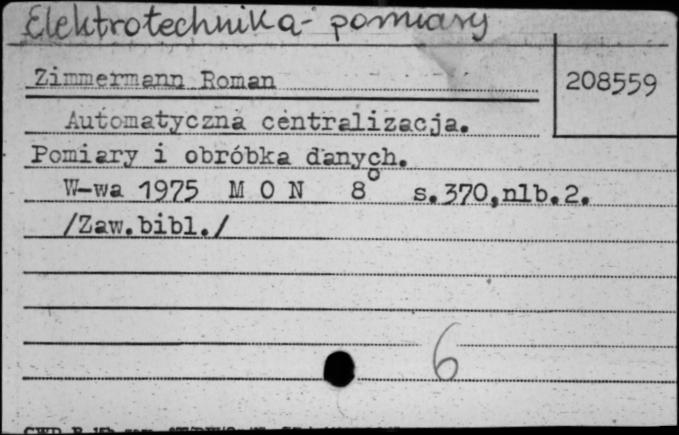 Elektrotechnika - pomiary
Zimmermann Roman
208559
Automatyczna centralizacja.
Pomiary i obróbka danych.
W-wa 1975 M O N 8° s.370,nlb.2.
/Zaw.bibl./
6